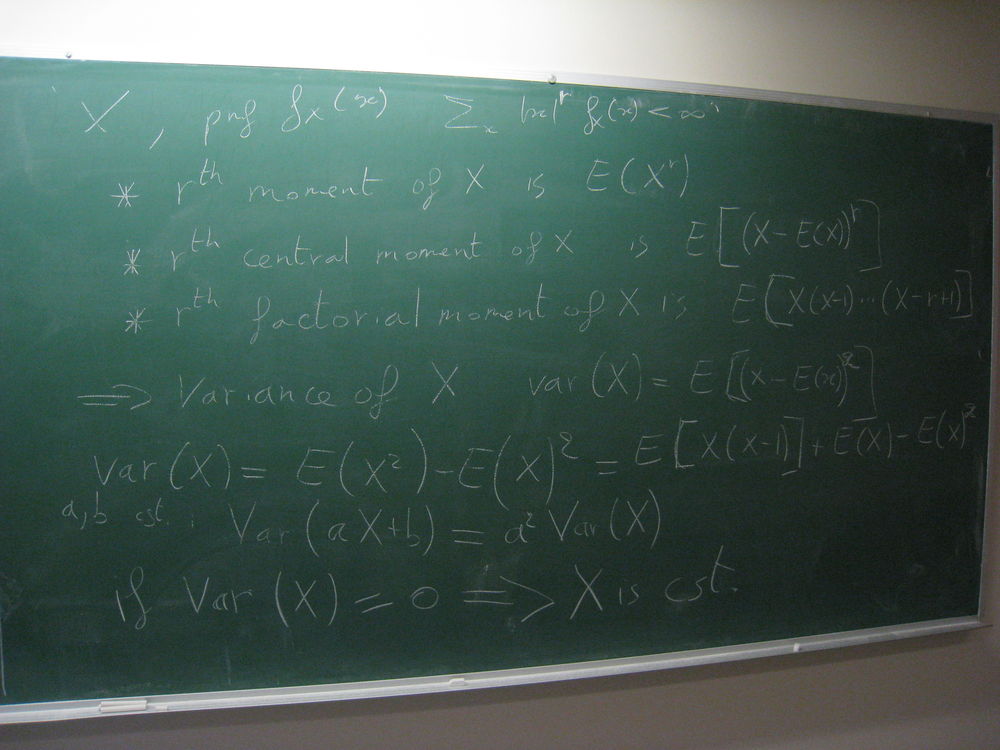 X, pmf f_X(x) Σ_x |x|^r f_X(x) < ∞
* r^th moment of X is E(X^r)
* r^th central moment of X is E[(X-E(X))^r]
* r^th factorial moment of X is E[X(X-1)...(X-r+1)]
⇒ Variance of X var(X) = E[(X-E(X))^2]
Var(X) = E(X^2)-E(X)^2 = E[X(X-1)]+E(X)-E(X)^2
a,b cst. : Var(aX+b) = a^2 Var(X)
if Var(X) = 0 ⇒ X is cst.